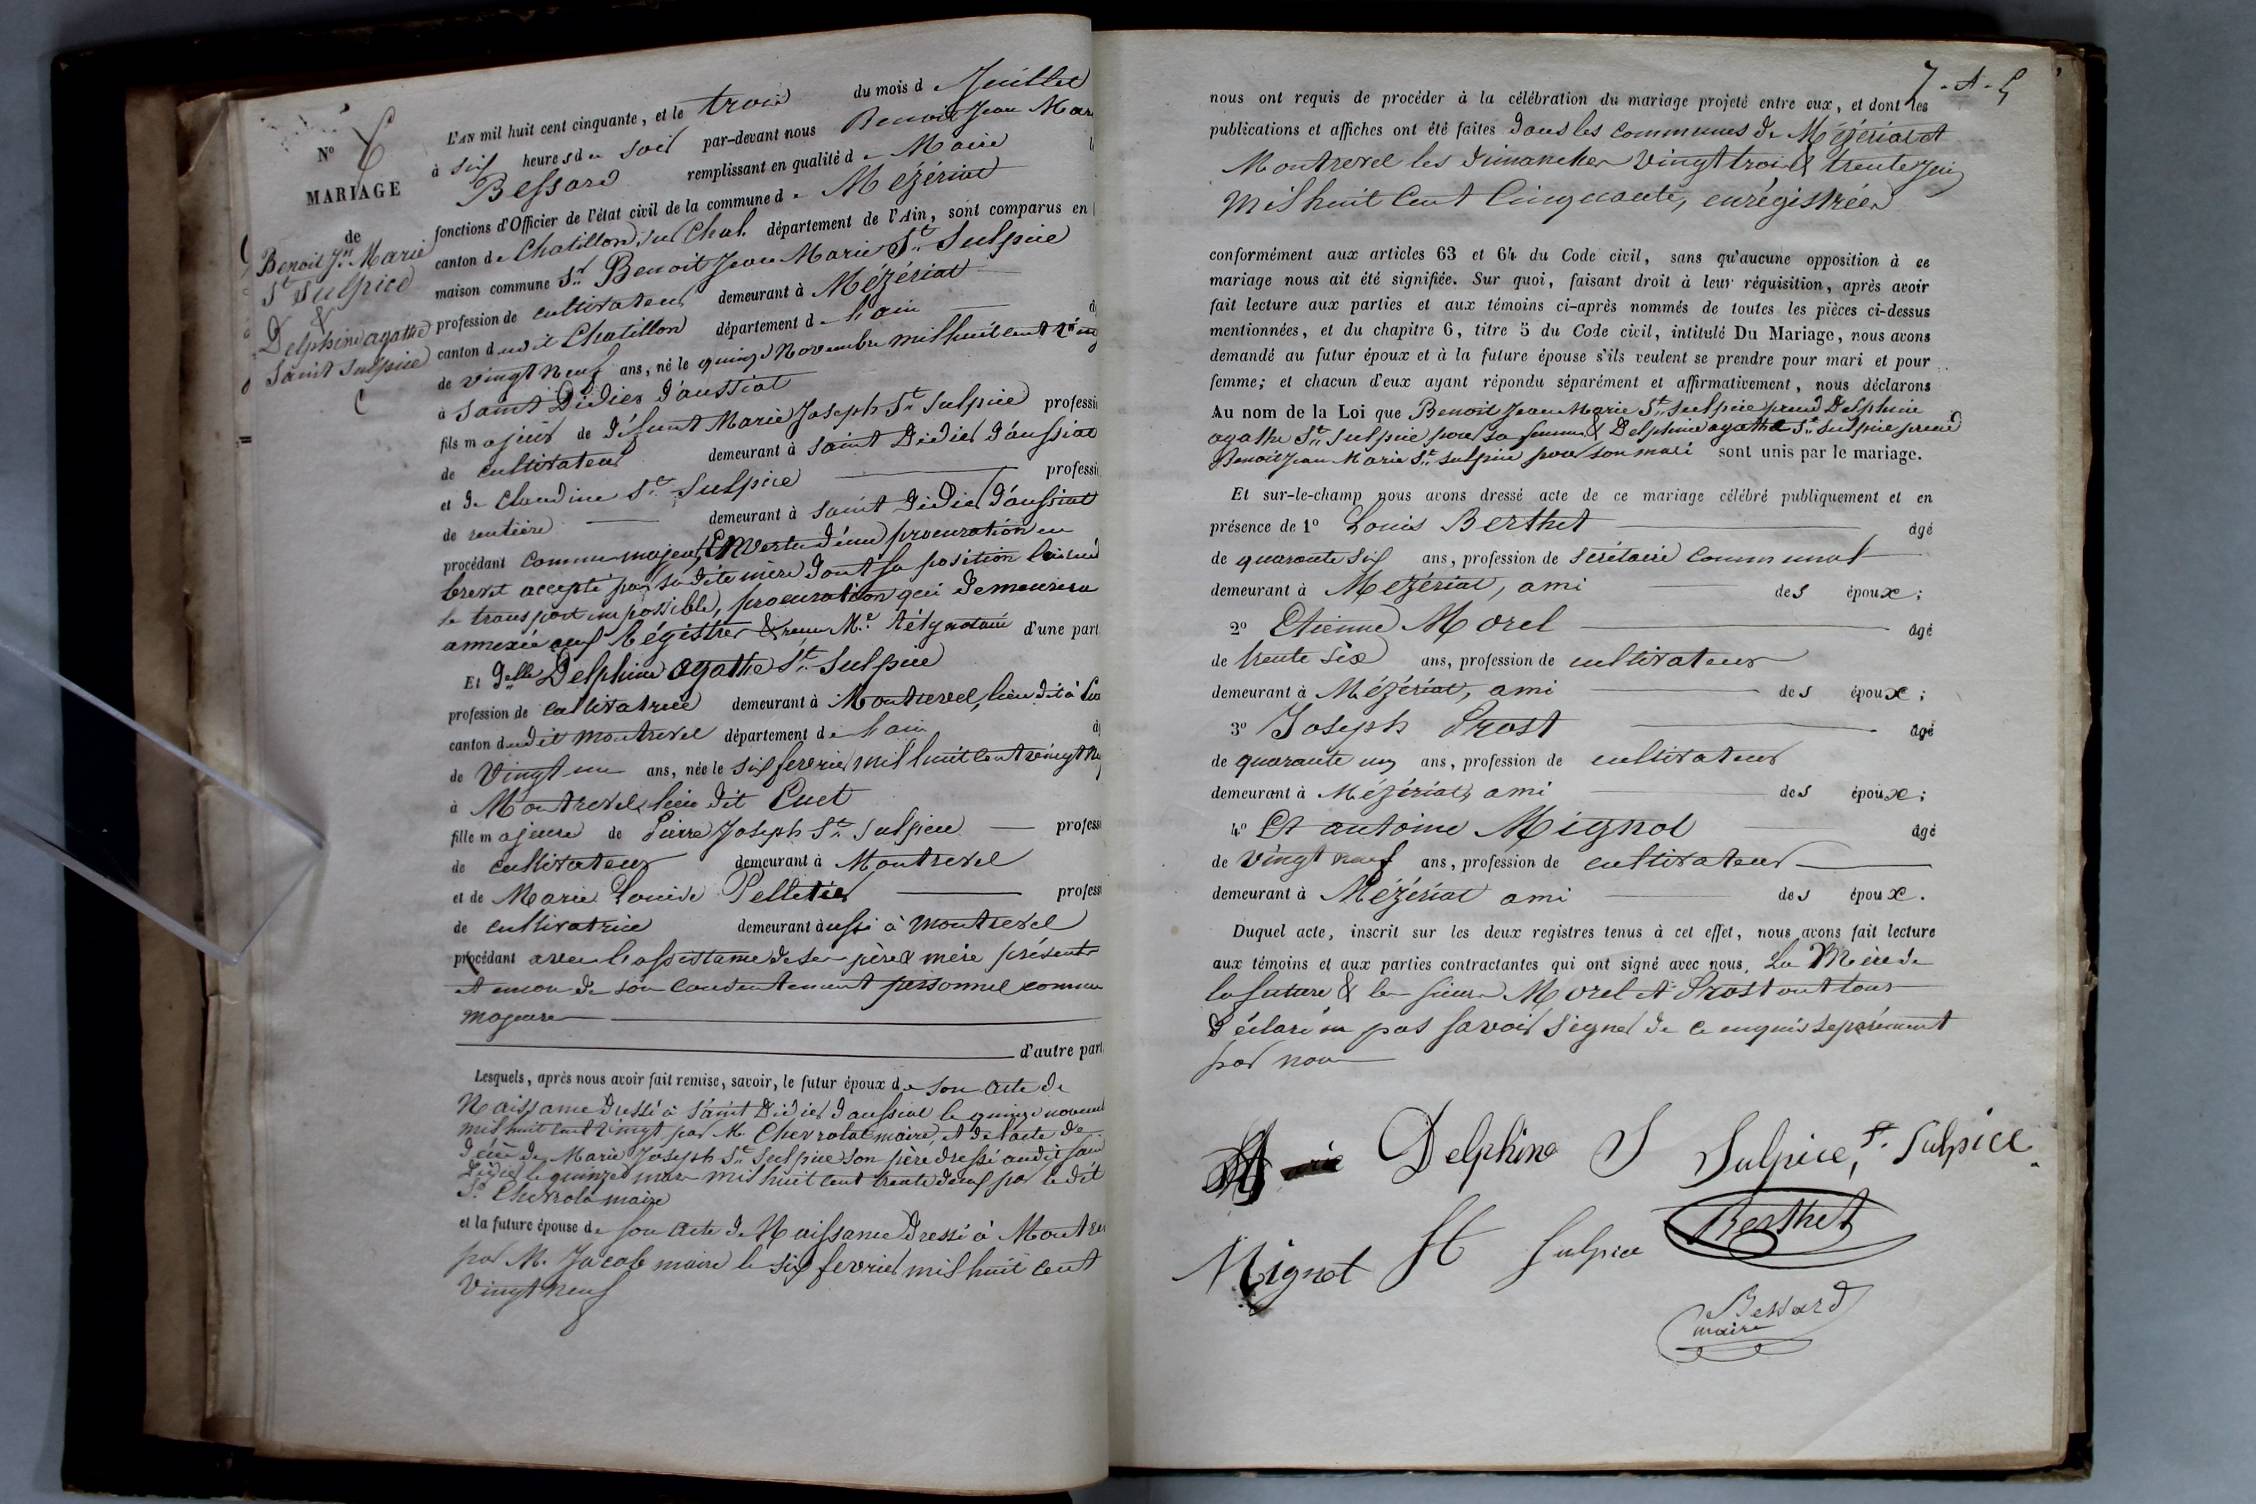 N° 6
MARIAGE
de
Benoit Jn Marie
St Sulpice
&
Delphine agathe
Saint Sulpice
L'AN mil huit cent cinquante, et le trois du mois d Juillet
à six heures de soir par-devant nous Benoit Jean Mar
Bessard remplissant en qualité de Maire l
fonctions d'Officier de l'état civil de la commune de Mézériat
canton de Chatillon sur Chal. département de l'Ain, sont comparus en
maison commune Sr Benoit Jean Marie St Sulpice
profession de cultivateur demeurant à Mézériat
canton dudit Chatillon département de l'ain
de vingt neuf ans, né le quinze Novembre mil huit cent vin
à Saint Didier d'aussiat
fils majeur de défunt Marie Joseph St Sulpice professi
de cultivateur demeurant à Saint Didier d'aussiat
et de Claudine St Sulpice professi
de rentière demeurant à Saint Didier d'aussiat
procédant comme majeur, en vertu d'une procuration en
brevet accepté par sa dite mère dont sa position
le transport impossible, procuration qui demeurera
annexée aux Régistres & reçue Me notaire d'une part
Et delle Delphine agathe St Sulpice
profession de cultivatrice demeurant à Montrevel, lieu dit à
canton dudit montrevel département de l'ain
de Vingt un ans, née le six fevrier mil huit cent vingt n
à Montrevel lieu dit Cuet
fille majeure de Pierre Joseph St Sulpice profess
de cultivateur demeurant à Montrevel
et de Marie Louise Pelletier profess
de cultivatrice demeurant aussi à Montrevel
procédant avec l'assistance de ses père & mère présents
et encore de son consentement personnel comme
majeure
d'autre part
Lesquels, après nous avoir fait remise, savoir, le futur époux de son acte de
Naissance dressé à Saint Didier d'aussiat le quinze novemb
mil huit cent vingt par M. Chevrolat maire, et de l'acte de
décès de Marie Joseph St Sulpice son père dressé audit saint
Didier le quinze mars mil huit cent trente deux par le dit
Sr Chevrolat maire
et la future épouse de son acte de Naissance dressé à Montre
par M. Jacob maire le six fevrier mil huit cent
Vingt neuf
nous ont requis de procéder à la célébration du mariage projeté entre eux, et dont les
publications et affiches ont été faites dans les communes de Mézériat et
Montrevel les dimanches vingt trois & trente Juin
Mil huit Cent Cinquante, enrégistrées
conformément aux articles 63 et 64 du Code civil, sans qu'aucune opposition à ce
mariage nous ait été signifiée. Sur quoi, faisant droit à leur réquisition, après avoir
fait lecture aux parties et aux témoins ci-après nommés de toutes les pièces ci-dessus
mentionnées, et du chapitre 6, titre 5 du Code civil, intitulé Du Mariage, nous avons
demandé au futur époux et à la future épouse s'ils veulent se prendre pour mari et pour
femme; et chacun d'eux ayant répondu séparément et affirmativement, nous déclarons
Au nom de la Loi que Benoit Jean Marie St Sulpice prend Delphine
agathe St Sulpice pour sa femme & Delphine agathe St Sulpice prend
Benoit Jean Marie St Sulpice pour son mari sont unis par le mariage.
Et sur-le-champ nous avons dressé acte de ce mariage célébré publiquement et en
présence de 1° Louis Berthet âgé
de quarante six ans, profession de secrétaire communal
demeurant à Mézériat, ami des époux;
2° Etienne Morel âgé
de trente six ans, profession de cultivateur
demeurant à Mézériat, ami des époux;
3° Joseph Prost âgé
de quarante un ans, profession de cultivateur
demeurant à Mézériat, ami des époux;
4° Et antoine Mignot âgé
de vingt neuf ans, profession de cultivateur
demeurant à Mézériat ami des époux.
Duquel acte, inscrit sur les deux registres tenus à cet effet, nous avons fait lecture
aux témoins et aux parties contractantes qui ont signé avec nous. La Mère de
la future & les sieurs Morel et Prost ont tous
déclaré ne pas savoir signer de ce enquis séparément
par nous
Delphine S Sulpice St. Sulpice
Mignot St Sulpice Berthet
Bessard
maire